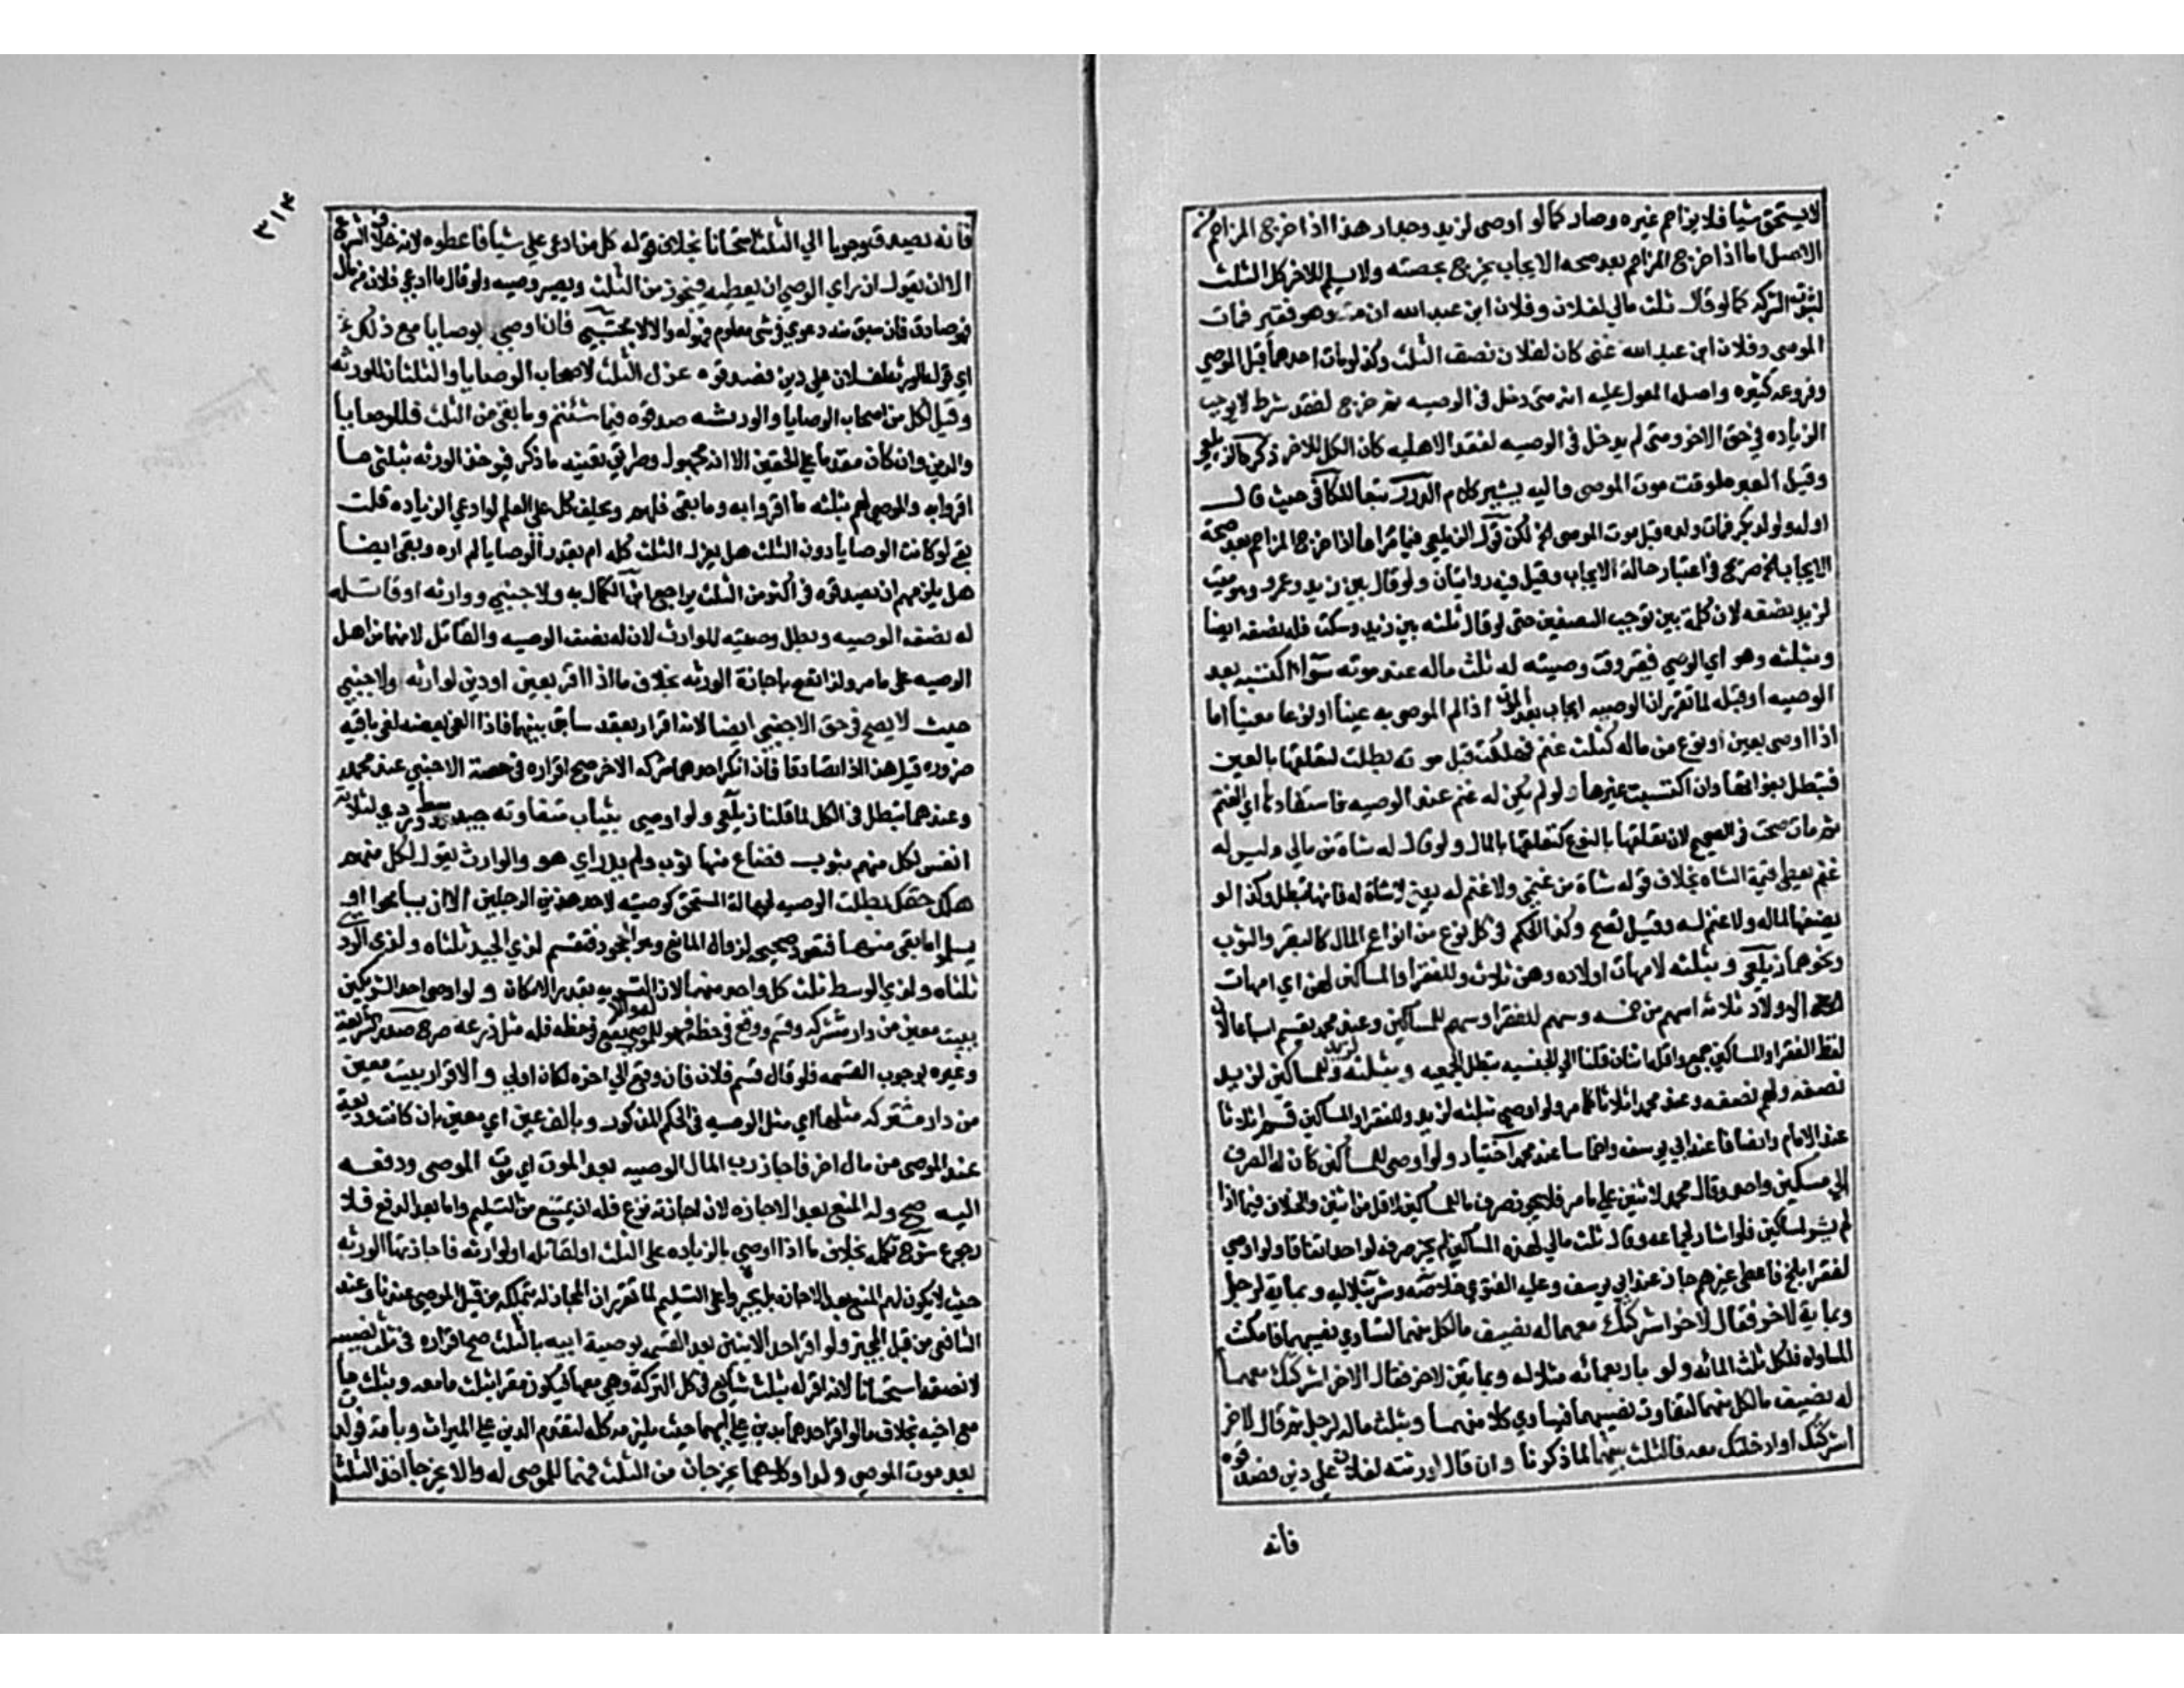 لا يستحق شيا فلا يزاحم غيره وصار كما لو اوصى لزيد وجدار هذا اذا خرج المزاحم من
الاصل اما اذا خرج المزاحم بعد صحه الايجاب يخرج بحصته ولا يسلم للاخر كل الثلث
لثبوت الشركه كما لو قال ثلث مالي لفلان وفلان ابن عبد الله ان مت وهو فقير فمات
الموصى وفلان ابن عبد الله غنى كان لفلان نصف الثلث وكذا لو مات احدهما قبل الموصي
وفروعه كثيره واصل المعول عليه انه متى دخل فى الوصيه ثم خرج لفقد شرط لا يوجب
الزياده في حق الاخر ومتى لم يدخل فى الوصيه لفقد الاهليه كان الكل للاخر ذكره الزيلعي
وقيل العبره لوقت موت الموصى واليه يشير كلام الدرر تبعا للكافى حيث قال
او له ولولد بكر فمات ولده قبل موت الموصى الخ لكن قول الزيلعي فيما مر اما اذا خرج المزاحم بعد صحة
الايجاب الخ صريح فى اعتبار حالة الايجاب وقيل فيه روايتان ولو قال بين زيد وعمرو وهو ميت
لزيد نصفه لان كلمة بين توجب التنصيف حتى لو قال ثلثه بين زيد وسكت فله نصفه ايضا
وبثلثه وهو اي الموصي فقير وقت وصيته له ثلث ماله عند موته سوآء اكتسبه بعد
الوصيه او قبله لما تقرر ان الوصيه ايجاب بعد الموت اذا لم الموصى به عينا او نوعا معينا اما
اذا اوصى بعين او نوع من ماله كثلث غنم فهلكت قبل موته بطلت لتعلقها بالعين
فتبطل بفواتها وان اكتسبت غيرها ولو لم يكن له غنم عند الوصيه فاستفادها اي الغنم
ثم مات صحت فى الصحيح لان تعلقها بالنوع كتعلقها بالمال ولو قال له شاة من مالي وليس له
غنم يعطى قيمة الشاه بخلاف قوله شاة من غنمي ولا غنم له يعني لا شاة له فانها تبطل وكذا لو
يضفها لماله ولا غنم له وقيل تصح وكذا الحكم فى كل نوع من انواع المال كالبقر والثوب
ونحوهما زيلعي وبثلثه لامهات اولاده وهن ثلاث وللفقرا والمساكين لهن اي امهات
الاولاد ثلاثه اسهم من خمسه وسهم للفقرا وسهم للمساكين وعند محمد يقسم اسباعا لان
لفظ الفقرا والمساكين جمع واقله اثنان قلنا ال الجنسيه تبطل الجمعيه وبثلثه لزيد وللمساكين لزيد
نصفه ولهم نصفه وعند محمد اثلاثا كما مر ولو اوصي بثلثه لزيد وللفقرا والمساكين قسم اثلاثا
عند الامام وانصافا عند ابي يوسف واخماسا عند محمد اختيار ولو اوصى للمساكين كان له الصرف
الى مسكين واحد وقال محمد لاثنين علي ما مر فلا يجوز صرف ما للمساكين لاقل من اثنين والخلاف فيما اذا
لم يشر لمساكين فلو اشار لجماعه وقال ثلث مالي لهذه المساكين لم يجز صرفه لواحد اتفاقا ولو اوصي
لفقرا بلخ فاعطى غيرهم جاز عند ابي يوسف وعليه الفتوي خلاصه وشرنبلاليه وبماية لرجل
وبماية لاخر فقال لاخر اشركتك معهما له نصيف ما لكل منهما لتساوي نصيبهما فامكنت
المساواه فلكل ثلث المائه ولو باربعمائه مثلا له وبمايتين لاخر فقال الاخر اشركتك معهما
له نصيف ما لكل منهما لتفاوت نصيبهما فيساوي كلا منهما وبثلث ماله لرجل ثم قال لاخر
اشركتك او ادخلتك معه فالثلث بينهما لما ذكرنا وان قال لورثته لفلان علي دين فصدقوه
فانه
٣١٤
فانه يصدق وجوبا الي الثلث استحسانا بخلاف قوله كل من ادعى علي شيا فاعطوه لانه خلاف الشرع
الا ان يقول ان راي الوصي ان يعطيه فيجوز من الثلث ويصير وصيه ولو قال ما ادعي فلان من مال
فهو صادق فان سبق منه دعوي فى شي معلوم فهو له والا لا مجتبي فان اوصي بوصايا مع ذلك
اي قوله لورثته لفلان علي دين فصدقوه عزل الثلث لاصحاب الوصايا والثلثان للورثه
وقيل لكل من اصحاب الوصايا والورثه صدقوه فيما شئتم وما بقي من الثلث فللوصايا
والدين وان كان مقدما علي الحقين الا انه مجهول وطريق تعيينه ما ذكر فيوخذ الورثه بثلثي ما
اقروا به والموصي لهم بثلثه ما اقروا به وما بقى فلهم ويحلف كل علي العلم لو ادعي الزياده قلت
بقي لو كانت الوصايا دون الثلث هل يعزل الثلث كله ام بقدر الوصايا لم اره وبقى ايضا
هل يلزمهم ان يصدقوه فى اكثر من الثلث يراجع ابن الكمال به ولاجنبي ووارثه او قاتله
له نصف الوصيه وبطل وصيته للوارث لان له نصف الوصيه والقاتل لانهما من اهل
الوصيه على ما مر ولذا تصح باجازة الورثه بخلاف ما اذا اقر بعين او دين لوارثه ولاجنبي
حيث لا يصح فى حق الاجنبي ايضا لانه اقرار بعقد سابق بينهما فاذا لغى بعضه لغى باقيه
ضروره قيل هذا اذا تصادقا فان انكر احدهما شركه الاخر صح اقراره فى حصة الاجنبي عند محمد
وعندهما تبطل فى الكل لما قلنا زيلعي ولو اوصي بثياب متفاوته جيد ووسط وردي لثلاثة
انفس لكل منهم بثوب فضاع منها ثوب ولم يدر اي هو والوارث يقول لكل منهم
هلك حقك بطلت الوصيه لجهالة المستحق كوصيته لاحد هذين الرجلين الا ان يسامحوا او
يسلموا ما بقى منهما فتعود صحيحه لزوال المانع وهو الجحود فتقسم لذي الجيد ثلثاه ولذي الردي
ثلثاه ولذي الوسط ثلث كل واحد منهما لان التسويه بقدر الامكان ولو اوصى احد الشريكين
ببيت معين من دار مشتركه وقسم ووقع فى حظه فهو للموصى له والا يقع فى حظه فله مثل ذرعه صرح صدر الشريعة
وغيره بوجوب القسمه فلو قال قسم فلان فان وقع الي اخره لكان اولى والاقرار ببيت معين
من دار مشتركه مثلها اي مثل الوصيه فى الحكم المذكور وبالف عين اي معين بان كانت وديعة
عند الموصى من مال اخر فاجاز رب المال الوصيه بعد الموت اي موت الموصى ودفعه
اليه صح وله المنع بعد الاجازه لان اجازته تبرع فله ان يمتنع من التسليم واما بعد الدفع فلا
رجوع شرح تكمله بخلاف ما اذا اوصي بالزياده على الثلث او لقاتله او لوارثه فاجازتها الورثه
حيث لا يكون لهم المنع بعد الاجازه بل يجبروا على التسليم لما تقرر ان المجاز له يتملكه من قبل الموصي عندنا وعند
الشافعى من قبل المجيز ولو اقر احد الابنين بعد القسمه بوصية ابيه بالثلث صح اقراره فى ثلث نصيبه
لا نصفه استحسانا لانه اقر له بثلث شايع فى كل التركة وهي معهما فيكون مقرا بثلث ما معه وبثلث ما
مع اخيه بخلاف ما لو اقر احدهما بدين علي ابيهما حيث يلزمه كله لتقدم الدين علي الميراث وبامة فولدت
بعد موت الموصي ولدا وكلاهما يخرجان من الثلث فهما للموصى له والا يخرجا اخذ الثلث